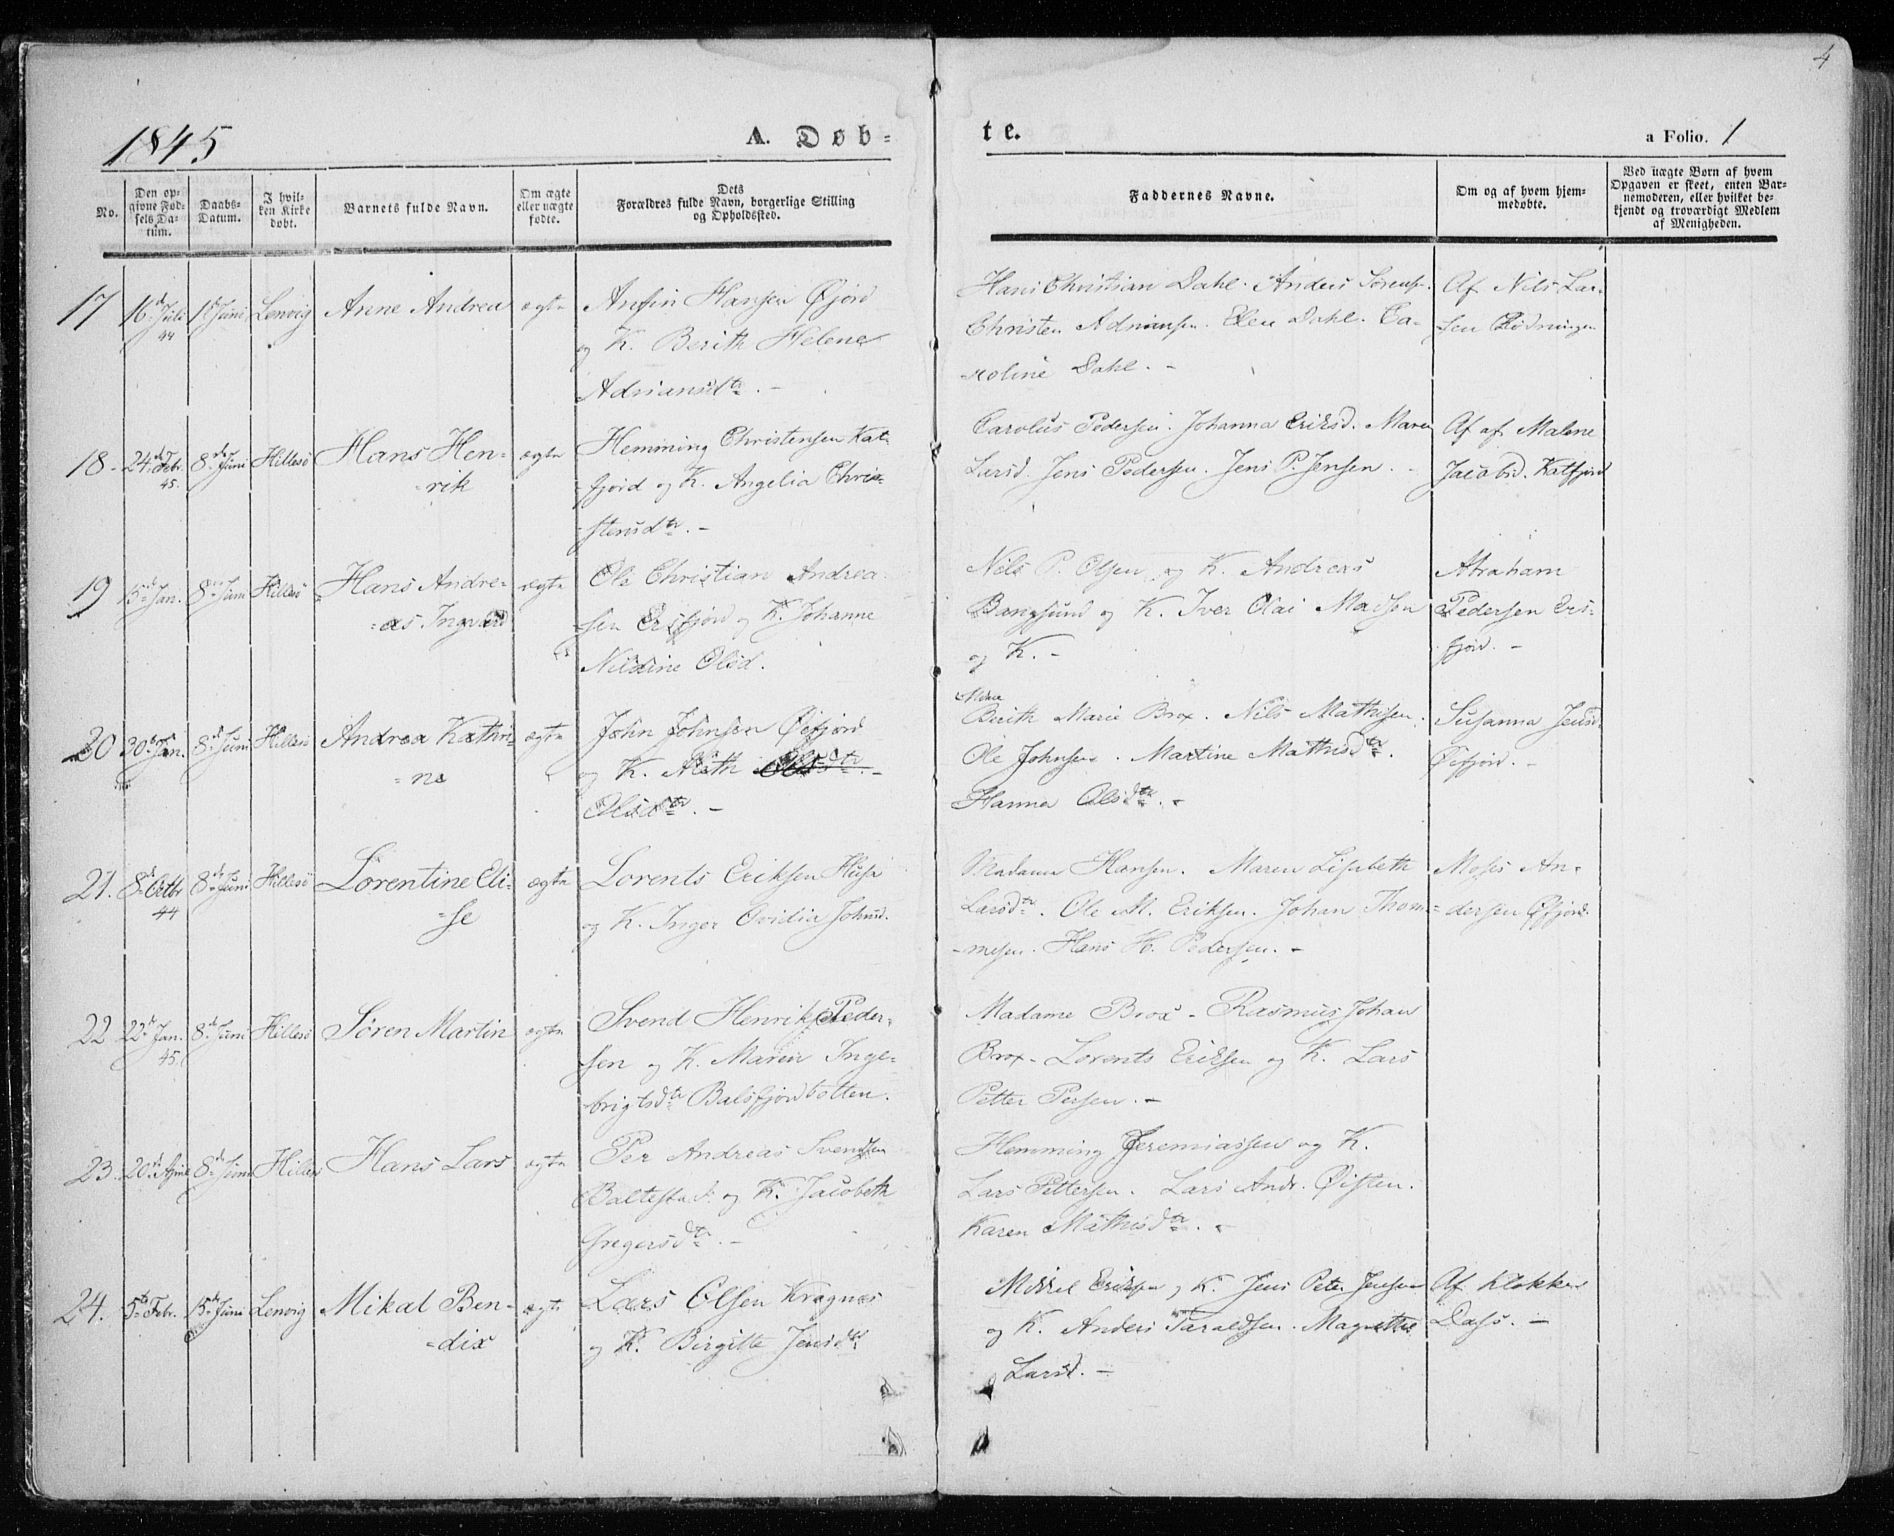 4
1845
A. Døb-
te.
a Folio. 1
No.
Den op-
givne Fød-
sels Da-
tum.
Daabs-
Datum.
I hvil-
ken Kirke
døbt.
Barnets fulde Navn.
Om ægte
eller uægte
fødte.
Dets
Forældres fulde Navn, borgerlige Stilling
og Opholdssted.
Faddernes Navne.
Om og af hvem hjem-
medøbte.
Ved uægte Børn af hvem
Opgaven er skeet, enten Bar-
nemoderen, eller hvilket be-
kjendt og troværdigt Medlem
af Menigheden.
17
16de Juli
44
1ste Juni
Lenvig
Anne Andrea
ægte
Anfin Hansen Gjörd
og K. Berith Helene
Adriansdtr. -
Hans Christian Dahl. Anders Sörens.
Christen Adriansen. Elen Dahl. Ca-
roline Dahl. -
Af Nils Lar-
sen Rödningen
18-
24de Febr.
45.
8de Juni
Hillesö
Hans Hen-
=rik
ægte
Hemming Christensen Kat-
fjord og K. Angelia Chris-
=stensdtr. -
Carolus Pedersen. Johanna Eriksd. Maren
Larsd. Jens Pedersen. Jens P. Jensen. -
Af af Malene
Jacobsd. Katfjord
19
15de Jan.
8de Juni
Hillesö
Hans Andre-
=as Ingvard
ægte
Ole Christian Andrea-
=sen Ersfjord og K. Johanne
Nilsine Olsd.
Nils P. Olsen og K. Andreas
Bangsund og K. Iver Olai Madsen
og K. -
Abraham
Pedersen Ers-
fjord. -
20
30te Jan.
8de Juni
Hillesö
Andrea Kathri-
=ne
ægte
John Johnsen Öifjord
og K. Aleth Olsdtr. -
Olsdtr. -
Mdme
Berith Marie Brox. Nils Mathisen.
Ole Johnsen. Martine Mathisdtr.
Hanna Olsdtr. -
Susanna Jensd.
Öifjord. -
21.
8de Octbr
44
8de Juni
Hillesö
Lorentine Eli-
=se
ægte
Lorents Eriksen Husö
og K. Inger Ovidia Johnsd.
Madame Hansen. Maren Lisabeth
Larsdtr. Ole M. Eriksen. Johan Thom-
=mesen. Hans H. Pedersen. -
Moses An-
=dersen Öifjord.
22
22de Jan.
45.
8de Juni
Hillesö
Sören Martin
ægte
Svend Henrik Peder-
sen og K. Maren Inge-
brigtsdtr Balsfjordbotten.
Madame Brox - Rasmus Johan
Brox - Lorents Eriksen og K. Lars
Petter Persen. -
23.
20de April
8de Juni
Hillesö
Hans Lars
ægte
Per Andreas Svendsen
Baltestad. og K. Jacobeth
Gregersdtr. -
Hemming Jeremiassen og K.
Lars Pettersen. Lars Andr. Öisten.
Karen Mathisdtr. -
24.
5te Febr.
15de Juni
Lenvig
Mikal Ben-
=dix
ægte
Lars Olsen Kragnæs
og K. Birgitte Jensdtr
Mikkel Eriksen og K. Jens Peter Jensen
og K. Anders Taraldsen. Magrethe
Larsd. -
Af Klokker
Dass. -